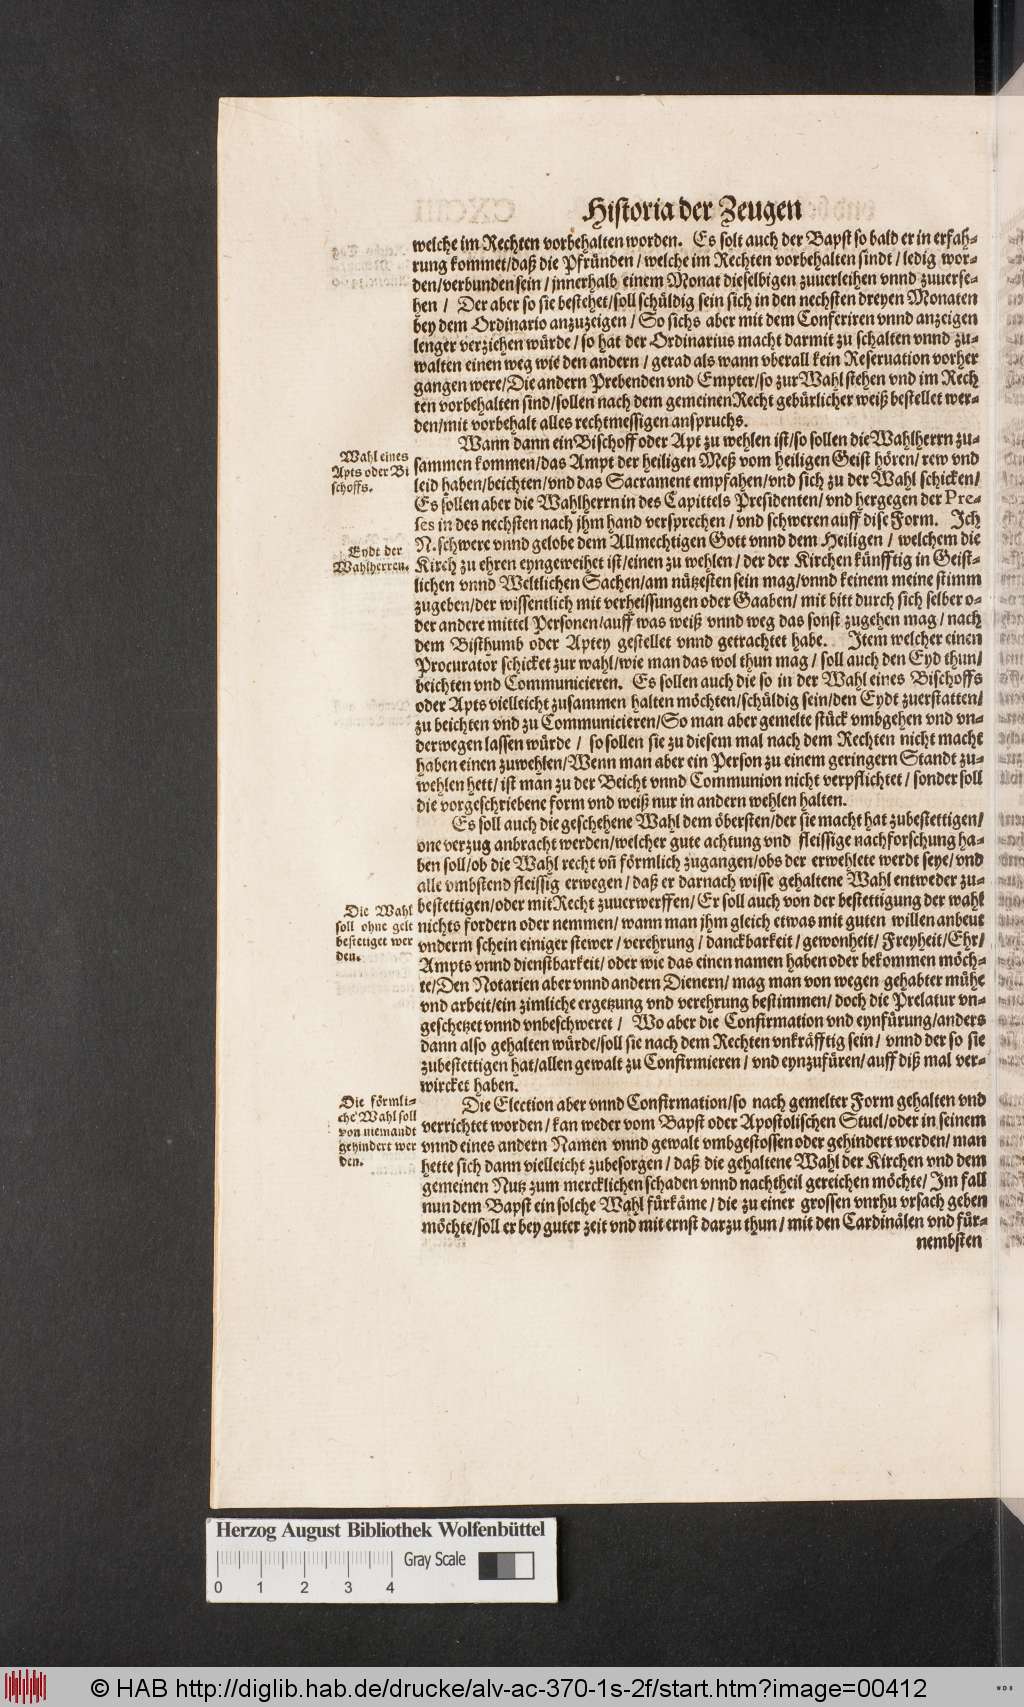 Historia der Zeugen
welche im Rechten vorbehalten worden. Es solt auch der Bapst so bald er in erfah-
rung kommet/daß die Pfründen/welche im Rechten vorbehalten sindt/ledig wor-
den/verbunden sein/jnnerhalb einem Monat dieselbigen zuuerleihen vnnd zuuerse-
hen/ Der aber so sie bestehet/soll schüldig sein sich in den nechsten dreyen Monaten
bey dem Ordinario anzuzeigen/So sichs aber mit dem Conferiren vnnd anzeigen
lenger verziehen würde/so hat der Ordinarius macht darmit zu schalten vnnd zu-
walten einen weg wie den andern/gerad als wann vberall kein Reseruation vorher
gangen were/Die andern Prebenden vnd Empter/so zur Wahl stehen vnd im Rech
ten vorbehalten sind/sollen nach dem gemeinen Recht gebürlicher weiß bestellet wer-
den/mit vorbehalt alles rechtmessigen anspruchs.
Wann dann ein Bischoff oder Apt zu wehlen ist/so sollen die Wahlherrn zu-
Wahl eines
Apts oder Bi
schoffs.
sammen kommen/das Ampt der heiligen Meß vom heiligen Geist hören/rew vnd
leid haben/beichten/vnd das Sacrament empfahen/vnd sich zu der Wahl schicken/
Es sollen aber die Wahlherrn in des Capittels Presidenten/vnd hergegen der Pre-
ses in des nechsten nach jhm hand versprechen/vnd schweren auff dise Form. Ich
Eydt der
Wahlherren.
N. schwere vnnd gelobe dem Allmechtigen Gott vnnd dem Heiligen/welchem die
Kirch zu ehren eyngeweihet ist/einen zu wehlen/der der Kirchen künfftig in Geist-
lichen vnnd Weltlichen Sachen/am nützesten sein mag/vnnd keinem meine stimm
zugeben/der wissentlich mit verheissungen oder Gaaben/mit bitt durch sich selber o-
der andere mittel Personen/auff was weiß vnnd weg das sonst zugehen mag/nach
dem Bisthumb oder Aptey gestellet vnnd getrachtet habe. Item welcher einen
Procurator schicket zur wahl/wie man das wol thun mag/soll auch den Eyd thun/
beichten vnd Communicieren. Es sollen auch die so in der Wahl eines Bischoffs
oder Apts vielleicht zusammen halten möchten/schüldig sein/den Eydt zuerstatten/
zu beichten vnd zu Communicieren/So man aber gemelte stück vmbgehen vnd vn-
derwegen lassen würde/ so sollen sie zu diesem mal nach dem Rechten nicht macht
haben einen zuwehlen/Wenn man aber ein Person zu einem geringern Standt zu-
wehlen hett/ist man zu der Beicht vnnd Communion nicht verpflichtet/sonder soll
die vorgeschriebene form vnd weiß nur in andern wehlen halten.
Es soll auch die geschehene Wahl dem öbersten/der sie macht hat zubestettigen/
one verzug anbracht werden/welcher gute achtung vnd fleissige nachforschung ha-
ben soll/ob die Wahl recht vñ förmlich zugangen/obs der erwehlete werdt seye/vnd
alle vmbstend fleissig erwegen/daß er darnach wisse gehaltene Wahl entweder zu-
bestettigen/oder mit Recht zuuerwerffen/Er soll auch von der bestettigung der wahl
Die Wahl
soll ohne gelt
bestetiget wer
den.
nichts fordern oder nemmen/wann man jhm gleich etwas mit guten willen anbeut
vnderm schein einiger stewer/verehrung/danckbarkeit/gewonheit/Freyheit/Ehr/
Ampts vnnd dienstbarkeit/oder wie das einen namen haben oder bekommen möch-
te/Den Notarien aber vnnd andern Dienern/mag man von wegen gehabter mühe
vnd arbeit/ein zimliche ergetzung vnd verehrung bestimmen/doch die Prelatur vn-
geschetzet vnnd vnbeschweret/ Wo aber die Confirmation vnd eynfürung/anders
dann also gehalten würde/soll sie nach dem Rechten vnkräfftig sein/ vnnd der so sie
zubestettigen hat/allen gewalt zu Confirmieren/vnd eynzufüren/auff diß mal ver-
wircket haben.
Die förmli-
che Wahl soll
von niemandt
gehindert wer
den.
Die Election aber vnnd Confirmation/so nach gemelter Form gehalten vnd
verrichtet worden/kan weder vom Bapst oder Apostolischen Stuel/oder in seinem
vnnd eines andern Namen vnnd gewalt vmbgestossen oder gehindert werden/man
hette sich dann vielleicht zubesorgen/daß die gehaltene Wahl der Kirchen vnd dem
gemeinen Nutz zum mercklichen schaden vnnd nachtheil gereichen möchte/Im fall
nun dem Bapst ein solche Wahl fürkäme/die zu einer grossen vnrhu vrsach geben
möchte/soll er bey guter zeit vnd mit ernst darzu thun/mit den Cardinälen vnd für-
nembsten
Herzog August Bibliothek Wolfenbüttel
Gray Scale
0 1 2 3 4
© HAB http://diglib.hab.de/drucke/alv-ac-370-1s-2f/start.htm?image=00412
WDB